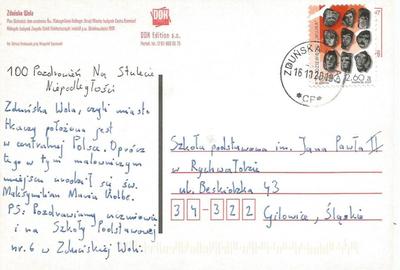 Zduńska Wola
DDK Edition s.c.
100 Pozdrowień Na Stulecie
Niepodległości
Zduńska Wola, czyli miasto
tkaczy położona jest
w centralnej Polsce. Oprócz
tego w tym malowniczym
miejscu urodził się św.
Maksymilian Maria Kolbe.
PS: Pozdrawiamy uczniowie
i na Szkoły Podstawowej
nr. 6 w Zduńskiej Woli
ZDUŃSKA
16.10.2018
*CF*
2,60 zł
Szkoła podstawowa im. Jana Pawła II
w Rychwałdzie
ul. Beskidzka 43
34-322 Gilowice, Śląskie